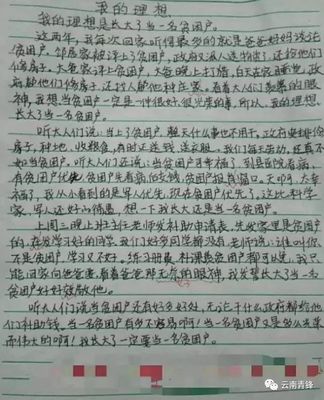 我的理想
我的理想是长大了当一名贫困户。
这两年,我每次回家听得最多的就是爸爸妈妈谈论
贫困户。邻居家被评上了贫困户,政府又派人送物资,还给他
们修房子。大爸家评上贫困户,大爸晚上打牌,白天在家睡觉,政
府帮他们修房子,还找人帮他种庄家。看着大人们羡慕的眼
神,我想当贫困户一定是一件很好,很光荣的事,所以,我的理想,
长大了当一名贫困户。
听大人们说:当上了贫困户,整天什么事也不用干,政府安排修
房子,种地,收粮食,有时还送钱,送衣服。我们每天劳动,还真不
如当贫困户。听大人们还说:当贫困户可幸福了,到县医院看病,
有贫困户优先,贫困户先看病后交钱,贫困户报销窗口,天啊,太幸
福了,我从小看到的是军人优先,现在贫困户优先了,这比科学
家,军人还好的待遇,想一下我长大还是当一名贫困户。
上周三晚上班主任老师发补助申请表,先发家里是贫困户
的,在发学习好的同学,我们好多同学都没有,老师说:谁叫你
不是贫困户,学习又不好。练习册费,朴课费贫困户都可以免,我只
能回家向爸爸要,看着爸爸那无奈的眼神,我发誓长大了当一名
贫困户好好孝敬他。
听大人们说当贫困户还有好多好处,无论干什么政府都给他
们补助钱。当一名贫困户有多不容易啊!当一名贫困户又是多么光荣
而伟大的啊!我长大了一定要当一名贫困户。
云南青锋